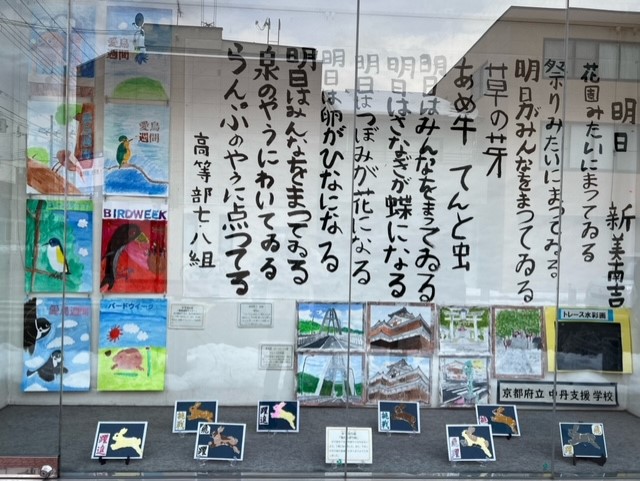 明日 新美南吉
花園みたいにまつてゐる
祭りみたいにまつてゐる
明日がみんなをまつてゐる
草の芽
あめ牛 てんと虫
明日はみんなをまつてゐる
明日はさなぎが蝶になる
明日はつぼみが花になる
明日は卵がひなになる
明日はみんなをまつてゐる
泉のやうにわいてゐる
らんぷのやうに点つてる
高等部七・八組
愛鳥
週間
愛鳥
週間
BIRDWEEK
愛鳥週間
バードウイーク
トレース水彩画
京都府立 中丹支援学校
躍進
挑戦
飛躍
躍進
挑戦